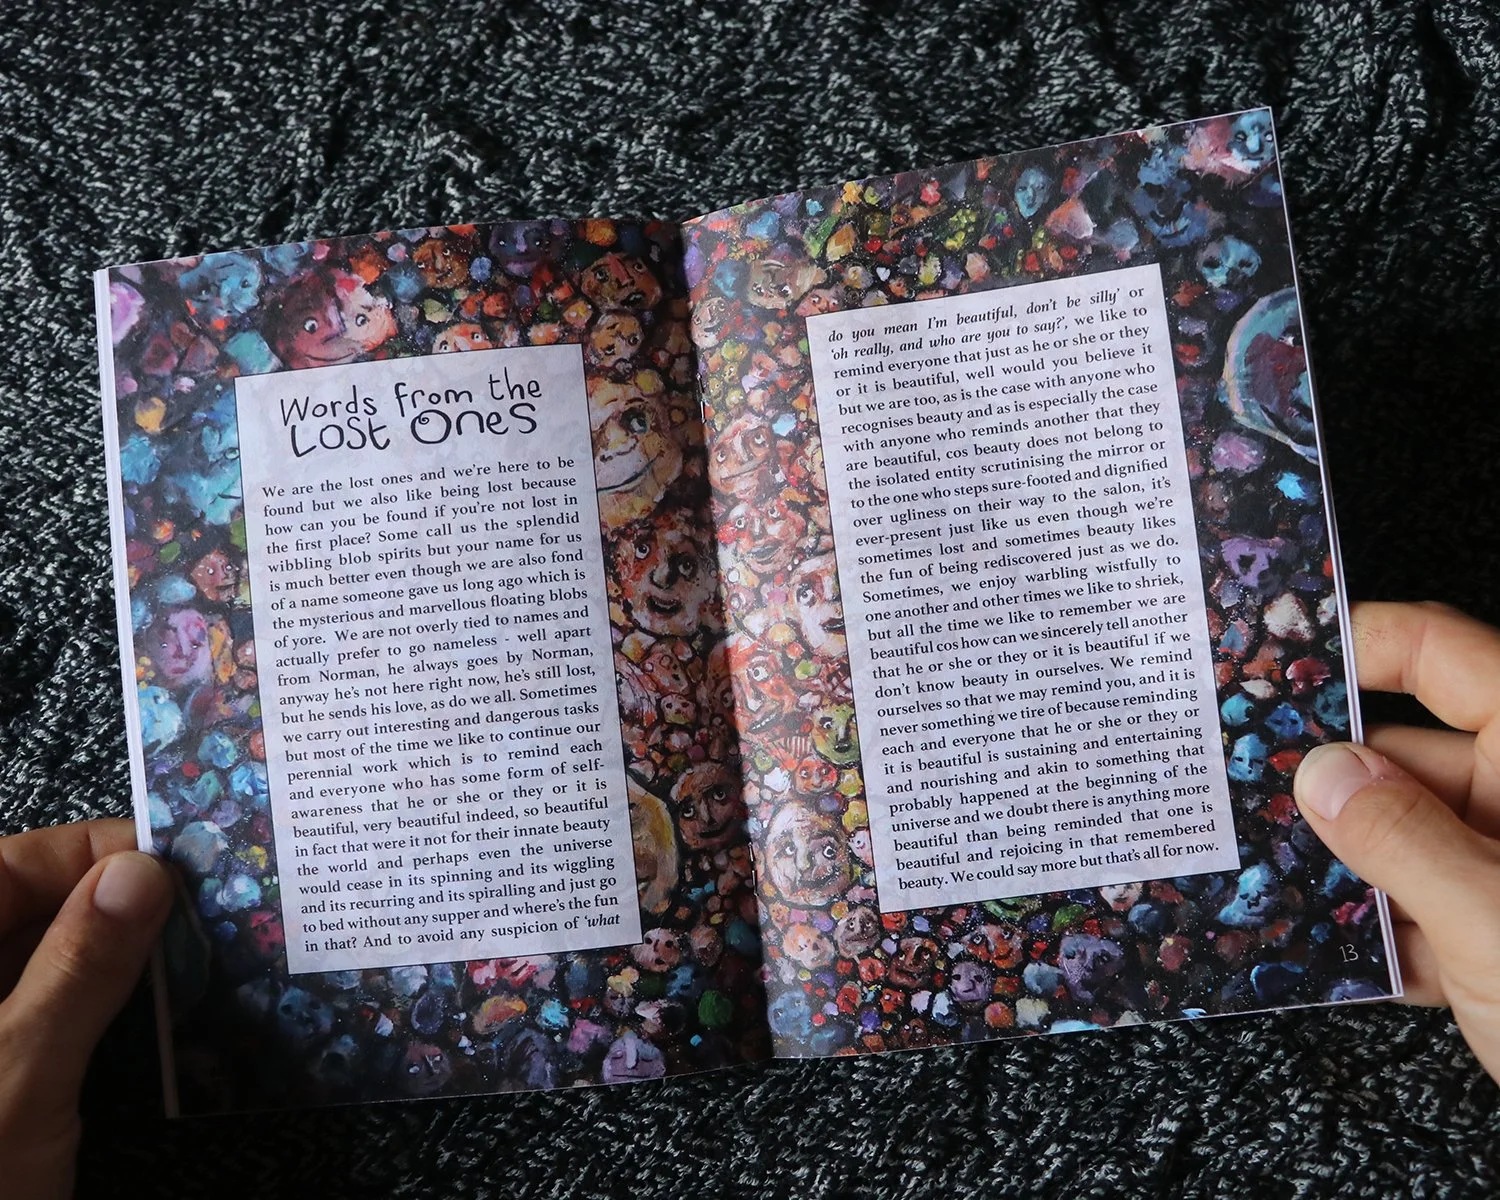 Words from the
Lost Ones
We are the lost ones and we're here to be
found but we also like being lost because
how can you be found if you're not lost in
the first place? Some call us the splendid
wibbling blob spirits but your name for us
is much better even though we are also fond
of a name someone gave us long ago which is
the mysterious and marvellous floating blobs
of yore. We are not overly tied to names and
actually prefer to go nameless - well apart
from Norman, he always goes by Norman,
anyway he's not here right now, he's still lost,
but he sends his love, as do we all. Sometimes
we carry out interesting and dangerous tasks
but most of the time we like to continue our
perennial work which is to remind each
and everyone who has some form of self-
awareness that he or she or they or it is
beautiful, very beautiful indeed, so beautiful
in fact that were it not for their innate beauty
the world and perhaps even the universe
would cease in its spinning and its wiggling
and its recurring and its spiralling and just go
to bed without any supper and where's the fun
in that? And to avoid any suspicion of 'what
do you mean I'm beautiful, don't be silly' or
'oh really, and who are you to say?', we like to
remind everyone that just as he or she or they
or it is beautiful, well would you believe it
but we are too, as is the case with anyone who
recognises beauty and as is especially the case
with anyone who reminds another that they
are beautiful, cos beauty does not belong to
the isolated entity scrutinising the mirror or
to the one who steps sure-footed and dignified
over ugliness on their way to the salon, it's
ever-present just like us even though we're
sometimes lost and sometimes beauty likes
the fun of being rediscovered just as we do.
Sometimes, we enjoy warbling wistfully to
one another and other times we like to shriek,
but all the time we like to remember we are
beautiful cos how can we sincerely tell another
that he or she or they or it is beautiful if we
don't know beauty in ourselves. We remind
ourselves so that we may remind you, and it is
never something we tire of because reminding
each and everyone that he or she or they or
it is beautiful is sustaining and entertaining
and nourishing and akin to something that
probably happened at the beginning of the
universe and we doubt there is anything more
beautiful than being reminded that one is
beautiful and rejoicing in that remembered
beauty. We could say more but that's all for now.
13